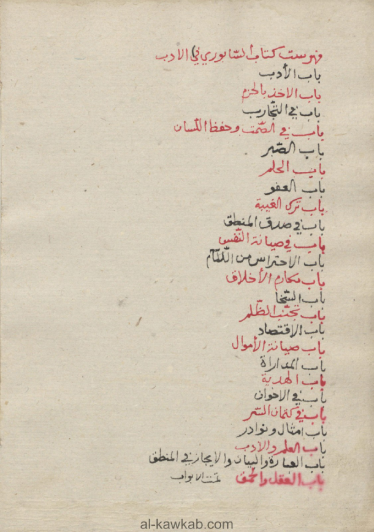 فهرست كتاب السابوري في الأدب
باب الأدب
باب الاخذ بالحزم
باب في التجارب
باب في الصمت وحفظ اللسان
باب الصبر
باب الحلم
باب العفو
باب ترك الغيبة
باب في صدق المنطق
باب في صيانة النفس
باب الاحتراس من الكلام
باب مكارم الأخلاق
باب السخا
باب تجنب الظلم
باب الاقتصاد
باب صيانة الأموال
باب المداراة
باب الهدية
باب في الاخوان
باب في كتمان السر
باب امثال ونوادر
باب العلم والادب
باب العبارة والبيان والايجاز في المنطق
باب العقل والحمق تمت الابواب
al-kawkab.com